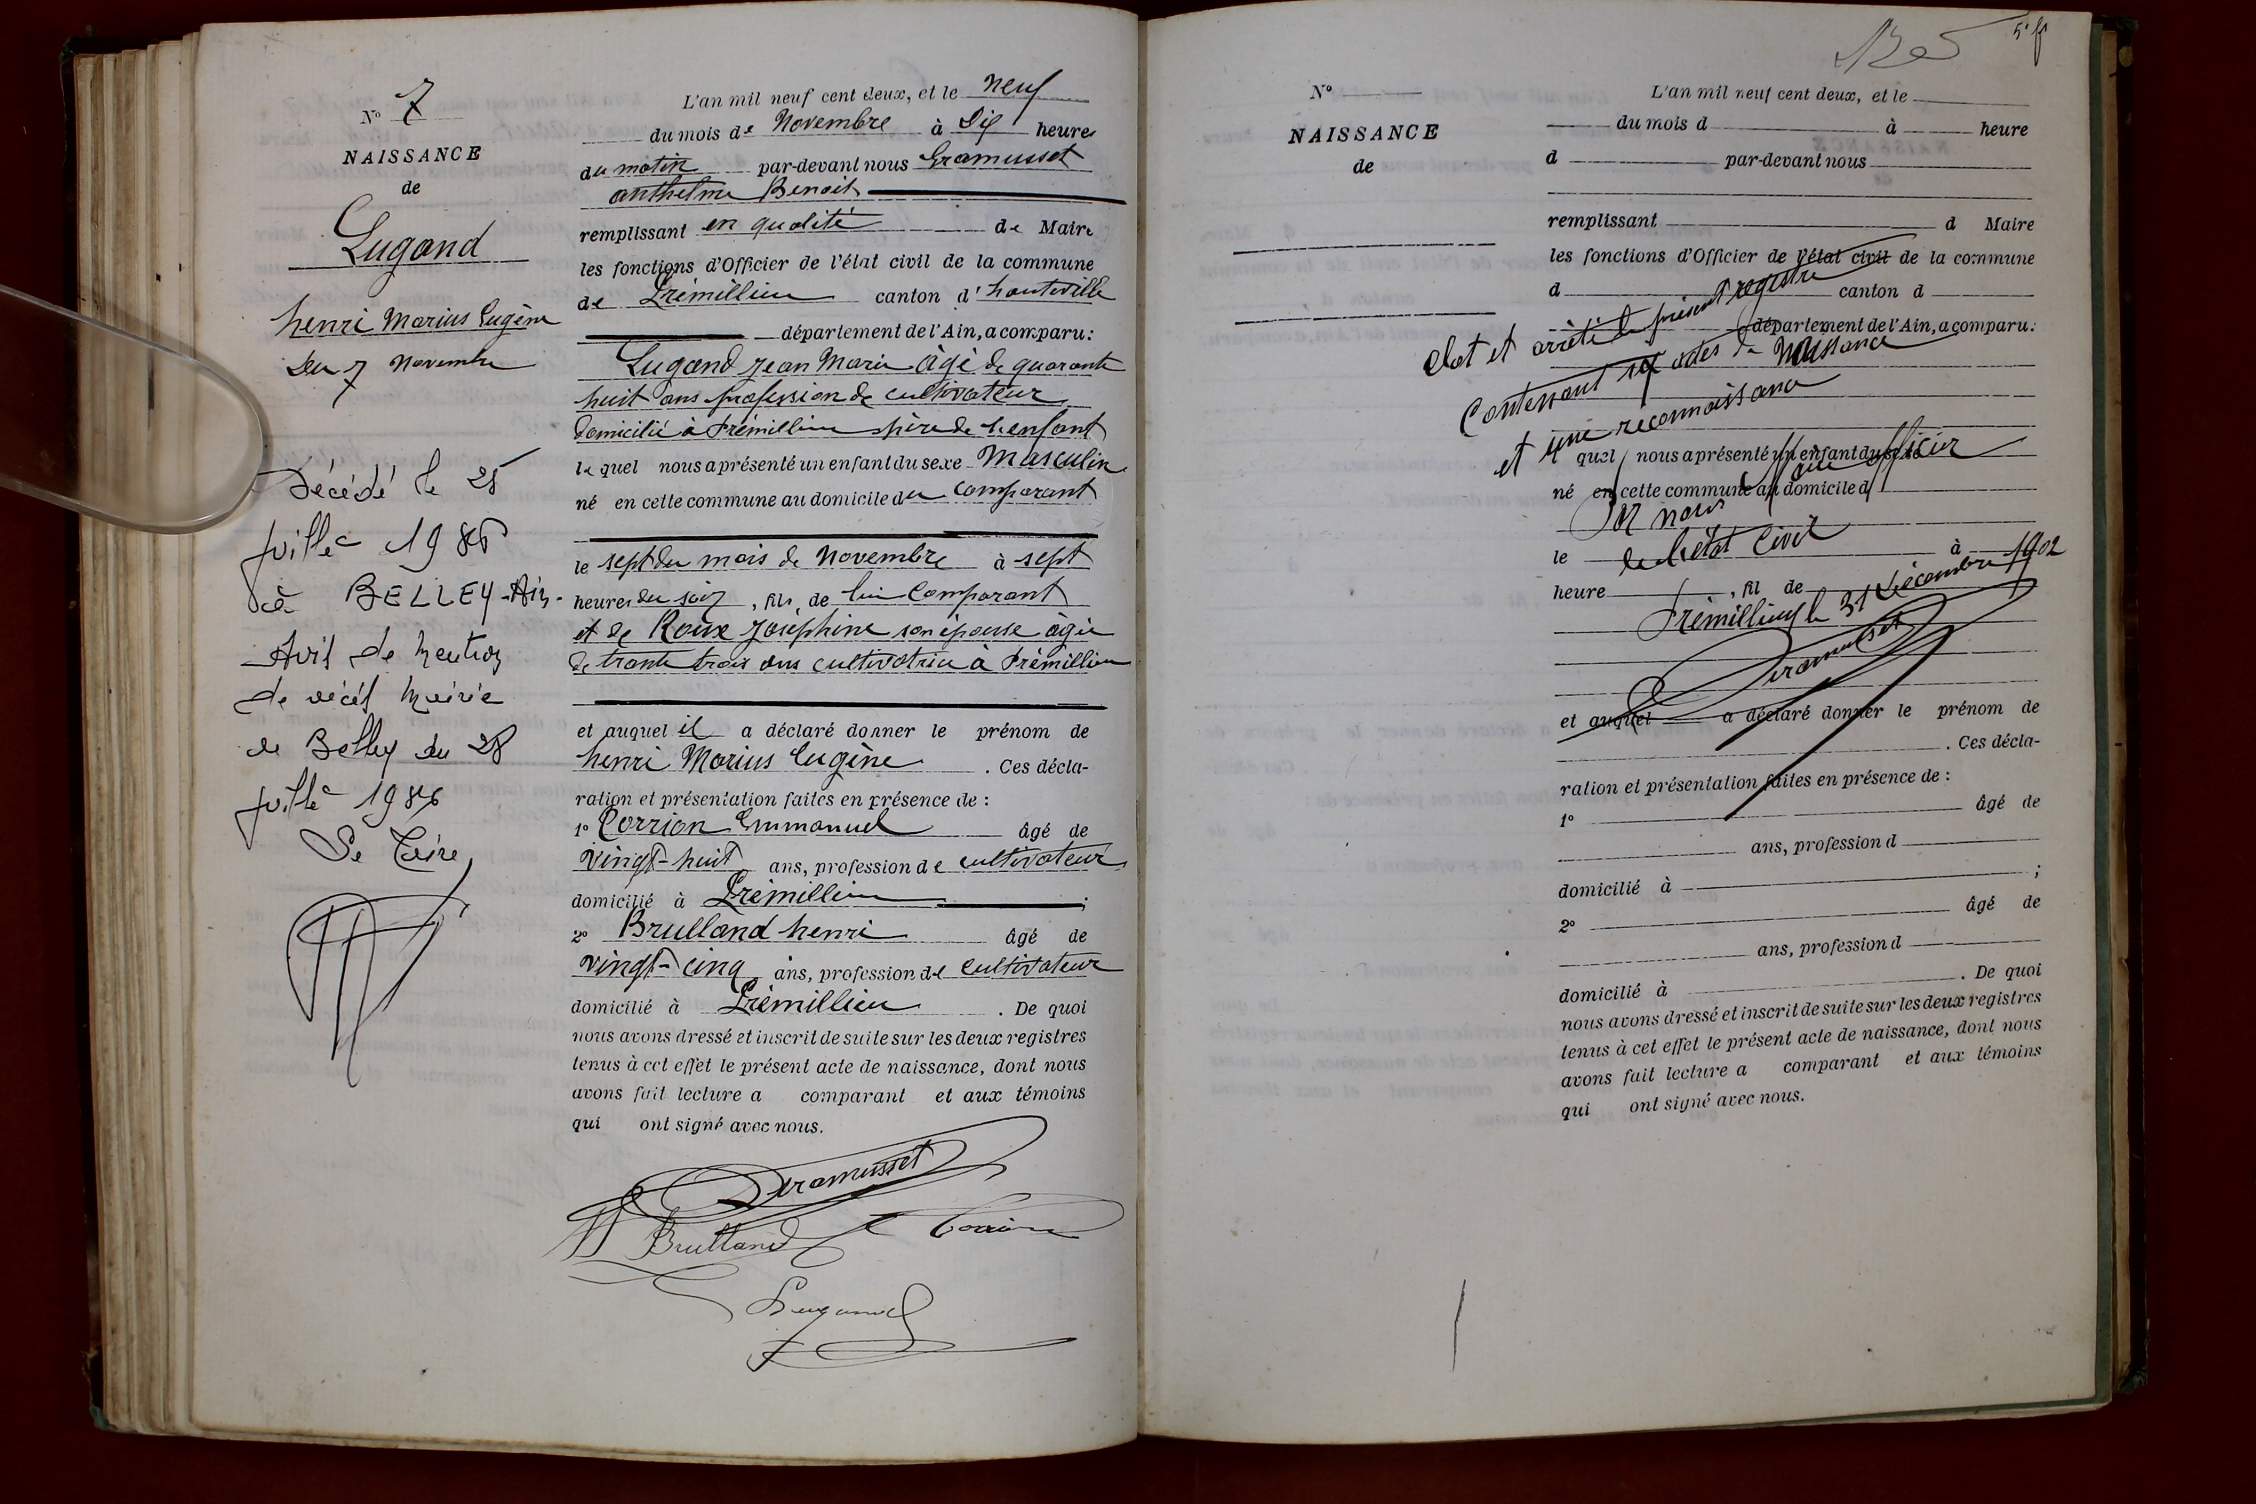 N° 7
NAISSANCE
de
Lugand
henri Marius Eugène
du 7 novembre
Décédé le 25
juillet 1986
à BELLEY-Ain-
Avis de mention
de décès Mairie
de Belley du 28
juillet 1986
Le Maire
L'an mil neuf cent deux, et le neuf
du mois de Novembre à Dix heures
du matin par-devant nous Gramusset
anthelme Benoit
remplissant en qualité de Maire
les fonctions d'Officier de l'état civil de la commune
de Prémillieu canton d'hauteville
département de l'Ain, a comparu:
Lugand Jean Marie âgé de quarante
huit ans profession de cultivateur
domicilié à Prémillieu père de l'enfant
lequel nous a présenté un enfant du sexe Masculin
né en cette commune au domicile du comparant
le sept du mois de Novembre à sept
heures du soir, fils de lui Comparant
et de Roux Joséphine son épouse âgée
de trente trois ans cultivatrice à Prémillieu
et auquel il a déclaré donner le prénom de
henri Marius Eugène. Ces décla-
ration et présentation faites en présence de :
1° Corrion Emmanuel âgé de
vingt-huit ans, profession de cultivateur
domicilié à Prémillieu ;
2° Brulland henri âgé de
vingt-cinq ans, profession de cultivateur
domicilié à Prémillieu. De quoi
nous avons dressé et inscrit de suite sur les deux registres
tenus à cet effet le présent acte de naissance, dont nous
avons fait lecture a comparant et aux témoins
qui ont signé avec nous.
Gramusset
Brulland Corrion
Lugand
5e f
N°
NAISSANCE
de
L'an mil neuf cent deux, et le
du mois d à heure
d par-devant nous
remplissant d Maire
les fonctions d'Officier de l'état civil de la commune
d canton d
département de l'Ain, a comparu:
Clot et arrêté le présent registre
Contenant sept actes de Naissance
et une reconnaissance
quel nous a présenté un enfant du sexe
né en cette commune au domicile d
Par nous Maire officier
de l'état Civil
le à
heure, fil de
Prémillieu le 31 Décembre 1902
Gramusset
et auquel a déclaré donner le prénom de
. Ces décla-
ration et présentation faites en présence de :
1° âgé de
ans, profession d
domicilié à ;
2° âgé de
ans, profession d
domicilié à . De quoi
nous avons dressé et inscrit de suite sur les deux registres
tenus à cet effet le présent acte de naissance, dont nous
avons fait lecture a comparant et aux témoins
qui ont signé avec nous.